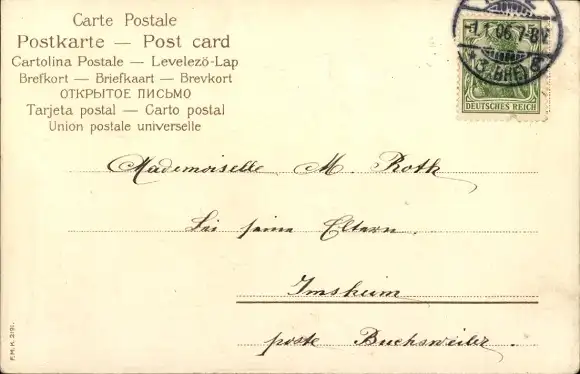 Carte Postale
Postkarte — Post card
Cartolina Postale — Levelező-Lap
Brefkort — Briefkaart — Brevkort
ОТКРЫТОЕ ПИСЬМО
Tarjeta postal — Carto postal
Union postale universelle
1.1.06.7-8V.
DEUTSCHES REICH
Mademoiselle M. Roth
bei seine Eltern.
Imsheim
poste Buchsweiler.
F.H.K. 2191.